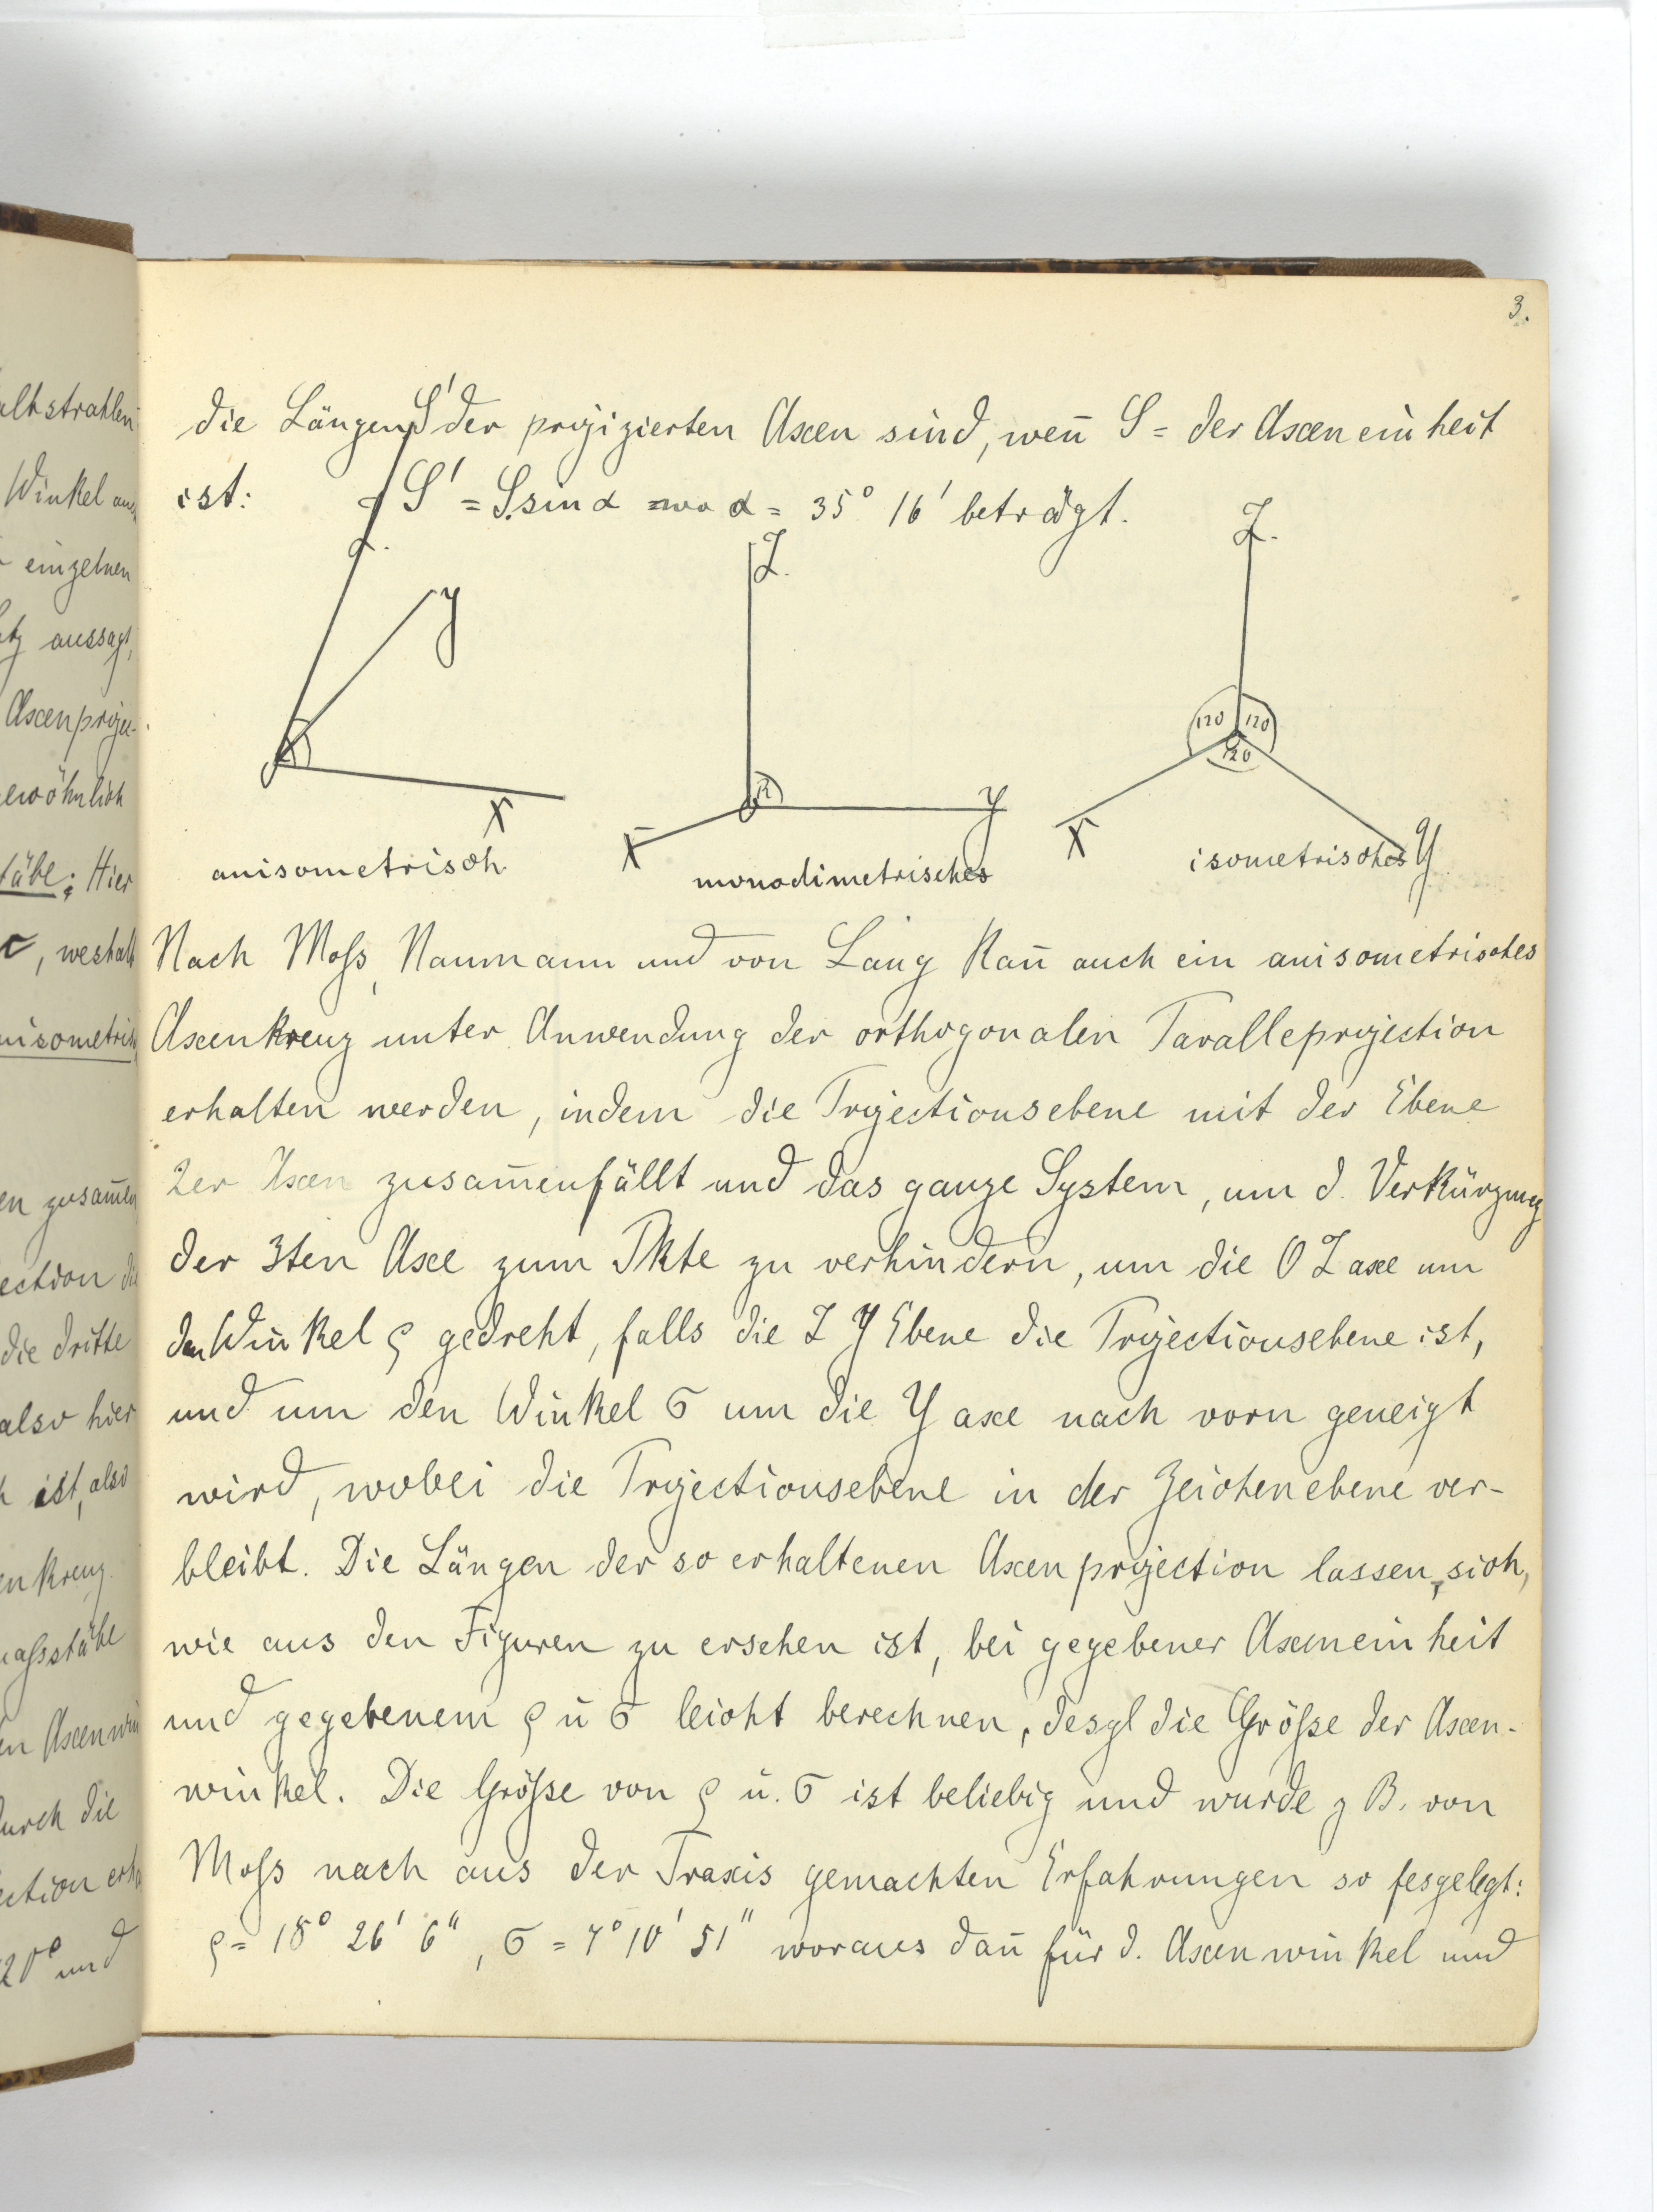 3.
die Längen S' der projizierten Axen sind, weñ S = der Axeneinheit
ist: S' = S.sin α wo α = 35° 16' beträgt.
Z.
y
X
anisometrisch
Z.
R
O
X
Y
monodimetrisches
Z.
120
120
120
X
Y
isometrisches
Nach Mohs, Naumann und von Lang kañ auch ein anisometrisches
Axenkreuz unter Anwendung der orthogonalen Paralleprojection
erhalten werden, indem die Projectionsebene mit der Ebene
2er Axen zusam̄enfällt und das ganze System, um d. Verkürzung
der 3ten Axe zum Pkte zu verhindern, um die O Z axe um
den Winkel ϱ gedreht, falls die Z Y Ebene die Projectionsebene ist,
und um den Winkel σ um die Y axe nach vorn geneigt
wird, wobei die Projectionsebene in der Zeichenebene ver-
bleibt. Die Längen der so erhaltenen Axenprojection lassen, sich,
wie aus den Figuren zu ersehen ist, bei gegebener Axeneinheit
und gegebenem ϱ u σ leicht berechnen, desgl die Größe der Axen-
winkel. Die Größe von ϱ u. σ ist beliebig und wurde z B. von
Mohs nach aus der Praxis gemachten Erfahrungen so fesgelegt:
ϱ = 18° 26' 6", σ = 7° 10' 51" woraus dañ für d. Axenwinkel und
altstrahlen
Winkel
einzelnen
aussagt,
Axenprojec-
ewöhnlich
täbe; Hier
, weshalb
nisometrisch
en zusam̄en
ection die
die dritte
also hier
ist, also
enkreuz.
maßstäbe
en Axenwin
durch die
ection erha
120° und